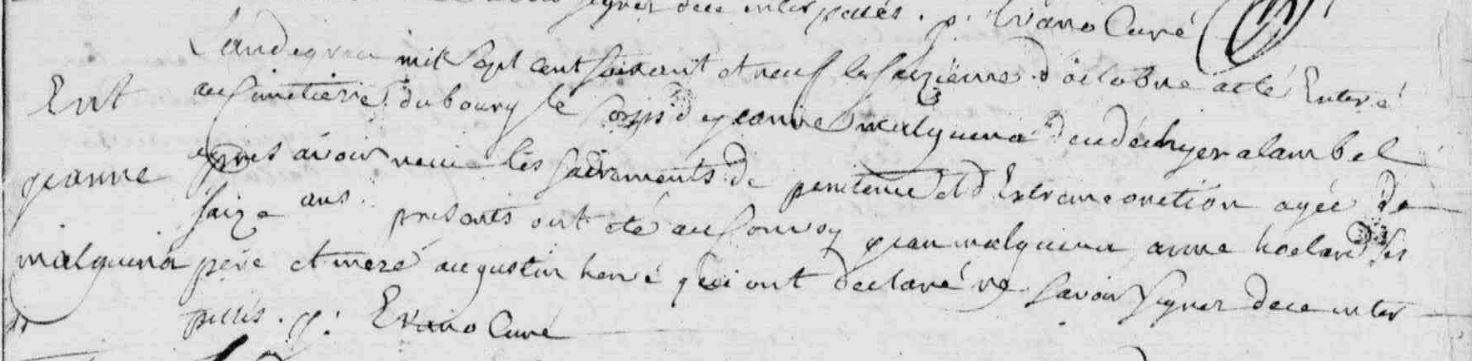 signer de ce interpellés. p: Evano Curé
L'an de grace mil sept cent soixant et neuf le saizieme d'octobre a eté Enterré
Ent
au Cimetiere du bourg le Corps de jeanne malguena decedé hyer a lambel
jeanne
apres avoir recue les sacrements de penitence et d'Extreme onction agée de
saize ans. presants ont eté au Convoy jean malguena anne hoelard ses
malguena
pere et mere augustin hervé qui ont declaré ne savoir signer de ce inter
pellés. p: Evano Curé